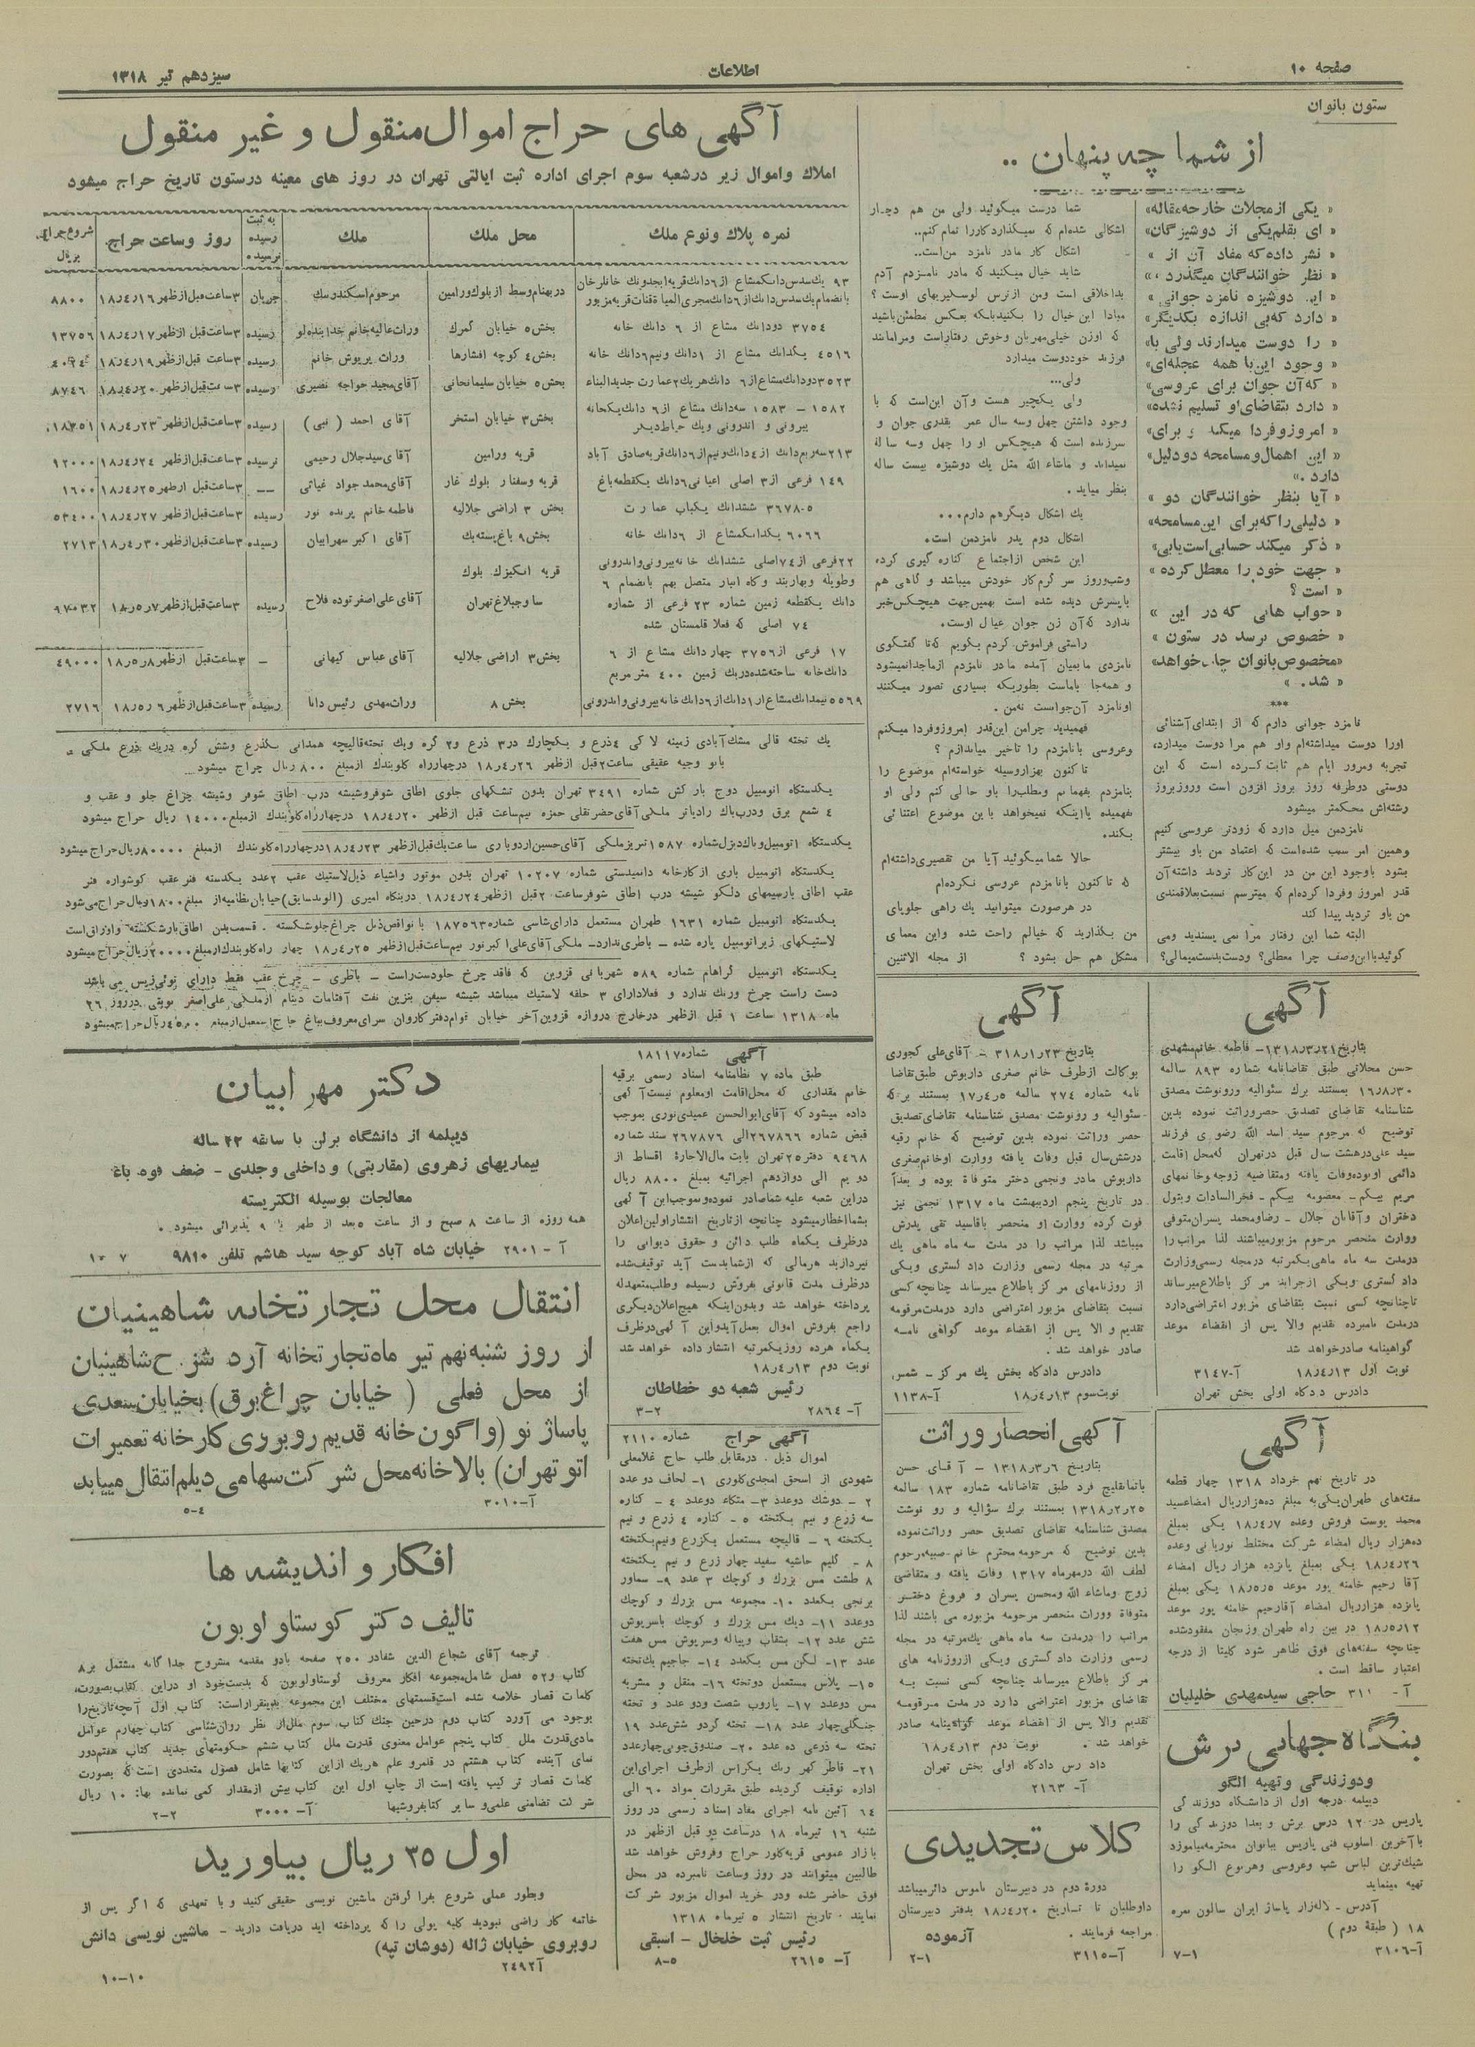 صفحه ۱۰
اطلاعات
سیزدهم تیر ۱۳۱۸
ستون بانوان
از شما چه پنهان ..
« یکی از مجلات خارجه مقاله»
« ای بقلم یکی از دوشیزگان»
« نشر داده که مفاد آن از »
« نظر خوانندگان میگذرد »
دوشیزه نامزد جوانی »
« دارد که بی اندازه یکدیگر»
« را دوست میدارند ولی با»
« وجود این با همه عجله‌ای»
« که آن جوان برای عروسی»
« دارد بتقاضای او تسلیم نشده»
« امروز و فردا میکند و برای»
« این اهمال و مسامحه دو دلیل»
دارد .»
« آیا بنظر خوانندگان دو »
« دلیلی را که برای این مسامحه»
« ذکر میکند حسابی است یا بی»
« جهت خود را معطل کرده »
« است ؟
« جواب هائی که در این »
« خصوص برسد در ستون »
«مخصوص بانوان چاپ خواهد»
« شد. »
***
نامزد جوانی دارم که از ابتدای آشنائی
اورا دوست میداشته‌ام واو هم مرا دوست میدارد،
تجربه ومرور ایام هم ثابت کرده است که این
دوستی دوطرفه روز بروز افزون است وروزبروز
رشته‌اش محکمتر میشود
نامزدمن میل دارد که زودتر عروسی کنیم
وهمین امر سبب شده است که اعتماد من باو بیشتر
بشود باوجود این من در این کار تردید داشته آن
قدر امروز وفردا کرده‌ام که میترسم نسبت بعلاقمندی
من باو تردید پیدا کند
البته شما این رفتار مرا نمی پسندید ومی
گوئید با این وصف چرا معطلی؟ ودست بدست میمالی؟
شما درست میگوئید ولی من هم دچار
اشکالی شده‌ام که نمیگذارد کار را تمام کنم..
اشکال کار مادر نامزد من است..
شاید خیال میکنید که مادر نامزدم آدم
بداخلاقی است ومن از ترس لوسگیریهای اوست ؟
مبادا این خیال را بکنید بلکه بعکس مطمئن باشید
که اوزن خیلی مهربان وخوش رفتار است ومرا مانند
فرزند خود دوست میدارد
ولی...
ولی یکچیز هست وآن این است که با
وجود داشتن چهل وسه سال عمر بقدری جوان و
سرزنده است که هیچکس او را چهل وسه ساله
نمیداند و ماشاء الله مثل یک دوشیزه بیست ساله
بنظر میاید .
یک اشکال دیگر هم دارم...
اشکال دوم پدر نامزدمن است.
این شخص از اجتماع کناره گیری کرده
وشب وروز سر گرم کار خودش میباشد و گاهی هم
با پسرش دیده شده است بهمین جهت هیچکس خبر
ندارد که آن زن جوان عیال اوست.
راستی فراموش کردم بگویم که تا گفتگوی
نامزدی ما بمیان آمده مادر نامزدم از ما جدا نمیشود
و همه جا با ماست بطوریکه بسیاری تصور میکنند
او نامزد آن جواست نه من.
فهمیدید چرا من این قدر امروز و فردا میکنم
وعروسی با نامزدم را تاخیر میاندازم ؟
تا کنون بهزار وسیله خواسته‌ام موضوع را
بنامزدم بفهمانم ومطلب را باو حالی کنم ولی او
نفهمیده یا اینکه نمیخواهد با این موضوع اعتنائی
بکند.
حالا شما میگوئید آیا من تقصیری داشته‌ام
که تا کنون با نامزدم عروسی نکرده‌ام
در هر صورت میتوانید یک راهی جلوپای
من بگذارید که خیالم راحت شده واین معمای
مشکل هم حل بشود ؟ از مجله الاثنین
آگهی های حراج اموال منقول و غیر منقول
املاک واموال زیر در شعبه سوم اجرای اداره ثبت ایالتی تهران در روز های معینه در ستون تاریخ حراج میشود
نمره پلاک ونوع ملک | محل ملک | ملک | به ثبت رسیده نرسیده | روز وساعت حراج | شروع حراج بریال
۹۳ یک سدس دانک مشاع از ۶ دانک قریه ایجدونک خانلر خان
بانضمام یک سدس دانک از ۶ دانک مجری المیاه قنات قریه مزبور | در بهنام وسط از بلوک ورامین | مرحوم اسکندر بیک | جریان | ۳ ساعت قبل از ظهر ۱۶ر۴ر۱۸ | ۸۸۰۰
۳۷۵۴ دو دانک مشاع از ۶ دانک خانه | بخش ۵ خیابان گمرک | وراث عالیه خانم خدا بنده لو | رسیده | ۳ ساعت قبل از ظهر ۱۷ر۴ر۱۸ | ۱۳۷۵۶
۴۵۱۶ یکدانک مشاع از ۱ دانک ونیم ۶ دانک خانه | بخش ۴ کوچه افشارها | وراث پریوش خانم | رسیده | ۳ ساعت قبل از ظهر ۱۹ر۴ر۱۸
۳۵۲۳ دو دانک مشاع از ۶ دانک هر یک ۲ عمارت جدید البناء | بخش ۵ خیابان سلیمانخانی | آقای مجید خواجه نصیری | رسیده | ۳ ساعت قبل از ظهر ۲۰ر۴ر۱۸ | ۸۷۴۶
۱۵۸۲ - ۱۵۸۳ سه دانک مشاع از ۶ دانک یکخانه
بیرونی و اندرونی ویک حیاط دیگر | بخش ۳ خیابان استخر | آقای احمد ( نبی ) | رسیده | ۳ ساعت قبل از ظهر ۲۳ر۴ر۱۸ | ۱۸۳۵۱
۲۱۳ سه ربع دانک از ۴ دانک ونیم از ۶ دانک قریه صادق آباد | قریه ورامین | آقای سید جلال رحیمی | نرسیده | ۳ ساعت قبل از ظهر ۲۴ر۴ر۱۸ | ۱۲۰۰۰
۱۴۹ فرعی از ۳ اصلی اعیانی ۶ دانک یکقطعه باغ | قریه وسفنار بلوک غار | آقای محمد جواد غیاثی | -- | ۳ ساعت قبل از ظهر ۲۵ر۴ر۱۸ | ۱۶۰۰
۵-۳۶۷۸ ششدانک یکباب عمارت | بخش ۳ اراضی جلالیه | فاطمه خانم پرنده نور | رسیده | ۳ ساعت قبل از ظهر ۲۷ر۴ر۱۸ | ۵۳۴۰۰
۶۰۶۶ یکدانک مشاع از ۶ دانک خانه | بخش ۹ باغ پسته بک | آقای اکبر سهرابیان | رسیده | ۳ ساعت قبل از ظهر ۳۰ر۴ر۱۸ | ۲۷۱۳
۲۲ فرعی از ۷۴ اصلی ششدانک خانه بیرونی و اندرونی
وطویله وبهاربند وکاه انبار متصل بهم بانضمام ۶
دانک یکقطعه زمین شماره ۲۳ فرعی از شماره
۷۴ اصلی که فعلا قلمستان شده | قریه انگیزک بلوک
ساوجبلاغ تهران | آقای علی اصغر توده فلاح | رسیده | ۳ ساعت قبل از ظهر ۷ر۵ر۱۸ | ۹۷۰۳۲
۱۷ فرعی از ۳۷۵۶ چهار دانک مشاع از ۶
دانک خانه ساخته شده در یک زمین ۴۰۰ متر مربع | بخش ۳ اراضی جلالیه | آقای عباس کیهانی | – | ۳ ساعت قبل از ظهر ۸ر۵ر۱۸ | ۴۹۰۰۰
۵۵۶۹ نیمدانک مشاع از ۱ دانک از ۶ دانک خانه بیرونی و اندرونی | بخش ۸ | وراث مهدی رئیس دانا | رسیده | ۳ ساعت قبل از ظهر ۶ر۵ر۱۸ | ۲۷۱۶
یک تخته قالی مشک آبادی زمینه لاکی ۴ ذرع و یکچارک در ۳ ذرع و ۲ گره ویک تخته قالیچه همدانی یکذرع وشش گره در یک ذرع ملکی
بانو وجیه عقیقی ساعت ۲ قبل از ظهر ۲۶ر۴ر۱۸ در چهار راه کلوبندک از مبلغ ۸۰۰ ریال حراج میشود
یکدستگاه اتومبیل دوج بارکش شماره ۳۴۹۱ تهران بدون تشکهای جلوی اطاق شوفر وشیشه درب اطاق شوفر وشیشه چراغ جلو و عقب و
۴ شمع برق ودرب باک رادیاتر ملکی آقای حضرتقلی حمزه نیم ساعت قبل از ظهر ۲۰ر۴ر۱۸ در چهار راه کلوبندک از مبلغ ۱۴۰۰۰ ریال حراج میشود
یکدستگاه اتومبیل وباک دیزل شماره ۱۵۸۷ تبریز ملکی آقای حسین اردوباری ساعت یک قبل از ظهر ۲۳ر۴ر۱۸ در چهار راه کلوبندک از مبلغ ۸۰۰۰۰ ریال حراج میشود
یکدستگاه اتومبیل باری از کارخانه دانمیستی شماره ۱۰۲۰۷ تهران بدون موتور واشیاء ذیل لاستیک عقب ۲ عدد یکدسته فنر عقب گوشواره فنر
عقب اطاق با رسیمهای دلکو شیشه درب اطاق شوفر ساعت ۲ قبل از ظهر ۲۴ر۴ر۱۸ در بنگاه امیری (الوند سابق) خیابان نظامیه از مبلغ ۱۸۰۰ ریال حراج می‌شود
یکدستگاه اتومبیل شماره ۱۶۳۱ طهران مستعمل دارای شاسی شماره ۱۸۷۵۶۳ با نواقص ذیل چراغ جلو شکسته . قسمت بدن اطاق بار شکسته و اوراق است
لاستیکهای زیر اتومبیل پاره شده – باطری ندارد – ملکی آقای علی اکبر نور نیم ساعت قبل از ظهر ۲۵ر۴ر۱۸ چهار راه کلوبندک از مبلغ ۲۰۰۰۰ ریال حراج میشود
یکدستگاه اتومبیل گراهام شماره ۵۸۹ شهربانی قزوین که فاقد چرخ جلو دست راست – باطری – چرخ عقب فقط دارای توئی زیس می باشد
دست راست چرخ ورنک ندارد و فعلا دارای ۳ حلقه لاستیک میباشد شیشه سیفن بنزین نفت آفتامات دینام از ملکی علی اصغر توپقی در روز ۲۶
ماه ۱۳۱۸ ساعت ۱ قبل از ظهر در خارج دروازه قزوین آخر خیابان قوام دفتر کاروان سرای معروف بباغ
آگهی
بتاریخ ۲۱ر۳ر۱۳۱۸– فاطمه خانم مشهدی
حسن محلاتی طبق تقاضانامه شماره ۸۹۳ ساله
۳۰ر۸ر۱۶ بمستند برک سئوالیه ورونوشت مصدق
شناسنامه تقاضای تصدیق حصر وراثت نموده بدین
توضیح که مرحوم سید اسد الله رضوی فرزند
سید علی در هشت سال قبل در تهران که محل اقامت
دائمی او بوده وفات یافته ومتقاضیه زوجه وخانمهای
مریم بیگم – معصومه بیگم – فخر السادات وبتول
دختران و آقایان جلال – رضا ومحمد پسران متوفی
ووارث منحصر مرحوم مزبور میباشند لذا مراتب را
در مدت سه ماه ماهی یکمرتبه در مجله رسمی وزارت
دادگستری ویکی از جراید مرکز باطلاع میرساند
تا چنانچه کسی نسبت بتقاضای مزبور اعتراضی دارد
در مدت نامبرده تقدیم والا پس از انقضاء موعد
گواهینامه صادر خواهد شد
نوبت اول ۱۳ر۴ر۱۸ آ–۳۱۴۷
دادرس دادگاه اولی بخش تهران
آگهی
در تاریخ نهم خرداد ۱۳۱۸ چهار قطعه
سفته‌های طهران یکی به مبلغ ده هزار ریال امضاء سید
محمد پوست فروش وعده ۷ر۴ر۱۸ یکی بمبلغ
ده هزار ریال امضاء شرکت مختلط نوریانی وعده
۲۶ر۴ر۱۸ یکی بمبلغ پانزده هزار ریال امضاء
آقا رحیم خامنه پور موعد ۵ر۵ر۱۸ یکی بمبلغ
پانزده هزار ریال امضاء آقا رحیم خامنه پور موعد
۱۲ر۵ر۱۸ در بین راه طهران وزنجان مفقود شده
چنانچه سفته‌های فوق ظاهر شود کلیتا از درجه
اعتبار ساقط است .
حاجی سید مهدی خلیلیان
بنگاه جهانی برش
ودوزندگی وتهیه الگو
دیپلمه درجه اول از دانشگاه دوزندگی
پاریس در ۱۲۰ درس برش و بعدا دوزندگی را
با آخرین اسلوب فنی پاریس ببانوان محترمه میاموزد
شیک ترین لباس شب وعروسی وهر نوع الگو را
تهیه مینماید
آدرس – لاله‌زار پاساژ ایران سالون نمره
۱۸ ( طبقه دوم )
آ–۳۱۰۶ ۱–۷
آگهی
بتاریخ ۲۳ر۱ر۳۱۸ – آقای علی کجوری
بوکالت از طرف خانم صغری داریوش طبق تقاضا
نامه شماره ۲۷۴ ساله ۴ر۵ر۱۷ بمستند برک
سئوالیه و رونوشت مصدق شناسنامه تقاضای تصدیق
حصر وراثت نموده بدین توضیح که خانم رقیه
در شش سال قبل وفات یافته ووارث او خانم صغری
داریوش مادر ونجمی دختر متوفاة بوده و بعداً
در تاریخ پنجم اردیبهشت ماه ۱۳۱۷ نجمی نیز
فوت کرده ووارث او منحصر بآقا سید تقی پدرش
میباشد لذا مراتب را در مدت سه ماه ماهی یک
مرتبه در مجله رسمی وزارت دادگستری ویکی
از روزنامه‌های مرکز باطلاع میرساند چنانچه کسی
نسبت بتقاضای مزبور اعتراضی دارد در مدت مرقومه
تقدیم و الا پس از انقضاء موعد گواهی نامه
صادر خواهد شد .
دادرس دادگاه بخش یک مرکز – شمس
نوبت سوم ۱۳ر۴ر۱۸ آ–۱۱۳۸
آگهی انحصار وراثت
بتاریخ ۶ر۳ر۱۳۱۸ – آقای حسن
باتمانقلیچ فرد طبق تقاضانامه شماره ۱۸۳ ساله
۲۵ر۲ر۱۳۱۸ بمستند برک سؤالیه و رو نوشت
مصدق شناسنامه تقاضای تصدیق حصر وراثت نموده
بدین توضیح که مرحومه محترم خانم صبیه مرحوم
لطف الله در مهرماه ۱۳۱۷ وفات یافته و متقاضی
زوج وماشاء الله ومحسن پسران و فروغ دختر
متوفاة وورات منحصر مرحومه مزبوره می باشند لذا
مراتب را در مدت سه ماه ماهی یک مرتبه در مجله
رسمی وزارت دادگستری ویکی از روزنامه های
مرکز باطلاع میرساند چنانچه کسی نسبت به
تقاضای مزبور اعتراضی دارد در مدت مرقومه
تقدیم والا پس از انقضاء موعد گواهینامه صادر
خواهد شد . نوبت دوم ۱۳ر۴ر۱۸
دادرس دادگاه اولی بخش تهران
آ– ۲۱۶۳
کلاس تجدیدی
دورهٔ دوم در دبیرستان ناموس دائر میباشد
داوطلبان تا تاریخ ۲۰ر۴ر۱۸ بدفتر دبیرستان
مراجعه فرمایند . آزموده
آ–۳۱۱۵ ۱–۲
آگهی شماره ۱۸۱۱۷
طبق ماده ۷ نظامنامه اسناد رسمی برقیه
خانم مقداری که محل اقامت او معلوم نیست آگهی
داده میشود که آقای ابوالحسن عمیدی نوری بموجب
قبض شماره ۲۶۷۸۶۶ الی ۲۶۷۸۷۶ سند شماره
۹۴۶۸ دفتر ۲۵ تهران بابت مال الاجاره اقساط از
دویم الی دوازدهم اجرائیه بمبلغ ۸۸۰۰ ریال
در این شعبه علیه شما صادر نموده وبموجب این آگهی
بشما اخطار میشود چنانچه از تاریخ انتشار اولین اعلان
در ظرف یکماه طلب دائن و حقوق دیوانی را
نپردازید هر مالی که از شما بدست آید توقیف شده
در ظرف مدت قانونی بفروش رسیده وطلب متعهدله
پرداخته خواهد شد وبدون اینکه هیچ اعلان دیگری
راجع بفروش اموال بعمل آید واین آگهی در ظرف
یکماه هر ده روز یکمرتبه انتشار داده خواهد شد
نوبت دوم ۱۳ر۴ر۱۸
رئیس شعبه دو خطاطان
آ– ۲۸۶۴ ۲–۳
آگهی حراج شماره ۲۱۱۰
اموال ذیل . در مقابل طلب حاج غلامعلی
شهودی از اسحق امجدی کلوری ۱– لحاف دو عدد
۲ – دوشک دو عدد ۳– متکاء دو عدد ۴ – کناره
سه زرع و نیم یکتخته ۵ – کناره ۴ زرع و نیم
یکتخته ۶ – قالیچه مستعمل یکزرع ونیم یکتخته
۸ – گلیم حاشیه سفید چهار زرع و نیم یکتخته
۸ طشت مس بزرک و کوچک ۳ عدد ۹– سماور
برنجی یکعدد ۱۰– مجموعه مس بزرک و کوچک
دو عدد ۱۱– دیک مس بزرک و کوچک باسرپوش
شش عدد ۱۲– بشقاب وپیاله وسرپوش مس هفت
عدد ۱۳– لگن مس یکعدد ۱۴– جاجیم یک تخته
۱۵– پلاس مستعمل دو تخته ۱۶– منقل و مشربه
مس دو عدد ۱۷– یاروب شصت ودو عدد و تخته
جنگلی چهار عدد ۱۸– تخته گردو شش عدد ۱۹
تخته سه ذرعی ده عدد ۲۰– صندوق چوبی چهار عدد
۲۱– قاطر کهر رنک یکراس از طرف اجرای این
اداره توقیف گردیده طبق مقررات مواد ۶۰ الی
۶۴ آئین نامه اجرای مفاد اسناد رسمی در روز
شنبه ۱۶ تیرماه ۱۸ در ساعت دو قبل از ظهر در
بازار عمومی قریه کلور حراج وفروش خواهد شد
طالبین میتوانند در روز وساعت نامبرده در محل
فوق حاضر شده ودر خرید اموال مزبور شرکت
نمایند . تاریخ انتشار ۵ تیرماه ۱۳۱۸
رئیس ثبت خلخال – اسبقی
آ– ۲۶۱۵ ۵–۸
دکتر مهرابیان
دیپلمه از دانشگاه برلن با سابقه ۲۲ ساله
بیماریهای زهروی (مقاربتی) و داخلی و جلدی – ضعف قوه باه
معالجات بوسیله الکتریسته
همه روزه از ساعت ۸ صبح و از ساعت ۵ بعد از ظهر تا ۹ پذیرائی میشود.
آ–۲۹۰۱ خیابان شاه آباد کوچه سید هاشم تلفن ۹۸۱۰ ۷–۱۰
انتقال محل تجارتخانه شاهینیان
از روز شنبه نهم تیر ماه تجارتخانه آرد شز. ح شاهینیان
از محل فعلی ( خیابان چراغ برق) بخیابان سعدی
پاساژ نو (واگون خانه قدیم روبروی کارخانه تعمیرات
اتو تهران) بالاخانه محل شرکت سهامی دیلم انتقال مییابد
آ–۳۰۱۰ ۴–۵
افکار و اندیشه ها
تالیف دکتر گوستاو لوبون
ترجمه آقای شجاع الدین شفا در ۲۵۰ صفحه با دو مقدمه مشروح جداگانه مشتمل بر ۸
کتاب و ۵۲ فصل شامل مجموعه افکار معروف گوستاو لوبون که بدست خود او در این کتاب بصورت
کلمات قصار خلاصه شده است قسمتهای مختلف این مجموعه بدینقرار است: کتاب اول آنچه تاریخ را
بوجود می آورد کتاب دوم در حین جنک کتاب سوم ملل از نظر روان شناسی کتاب چهارم عوامل
مادی قدرت ملل کتاب پنجم عوامل معنوی قدرت ملل کتاب ششم حکومتهای جدید کتاب هفتم دور
نمای آینده کتاب هشتم در قلمرو علم هر یک از این کتابها شامل فصول متعددی است که بصورت
کلمات قصار ترکیب یافته است از چاپ اول این کتاب بیش از مقدار کمی نمانده بها: ۱۰ ریال
شرکت تضامنی علمی و سایر کتابفروشیها آ– ۳۰۰۰ ۲–۲
اول ۳۵ ریال بیاورید
وبطور عملی شروع بفرا گرفتن ماشین نویسی حقیقی کنید و با تعهدی که اگر پس از
خاتمه کار راضی نبودید کلیه پولی را که پرداخته اید دریافت دارید – ماشین نویسی دانش
روبروی خیابان ژاله (دوشان تپه)
آ۲۴۹۲ ۱۰–۱۰